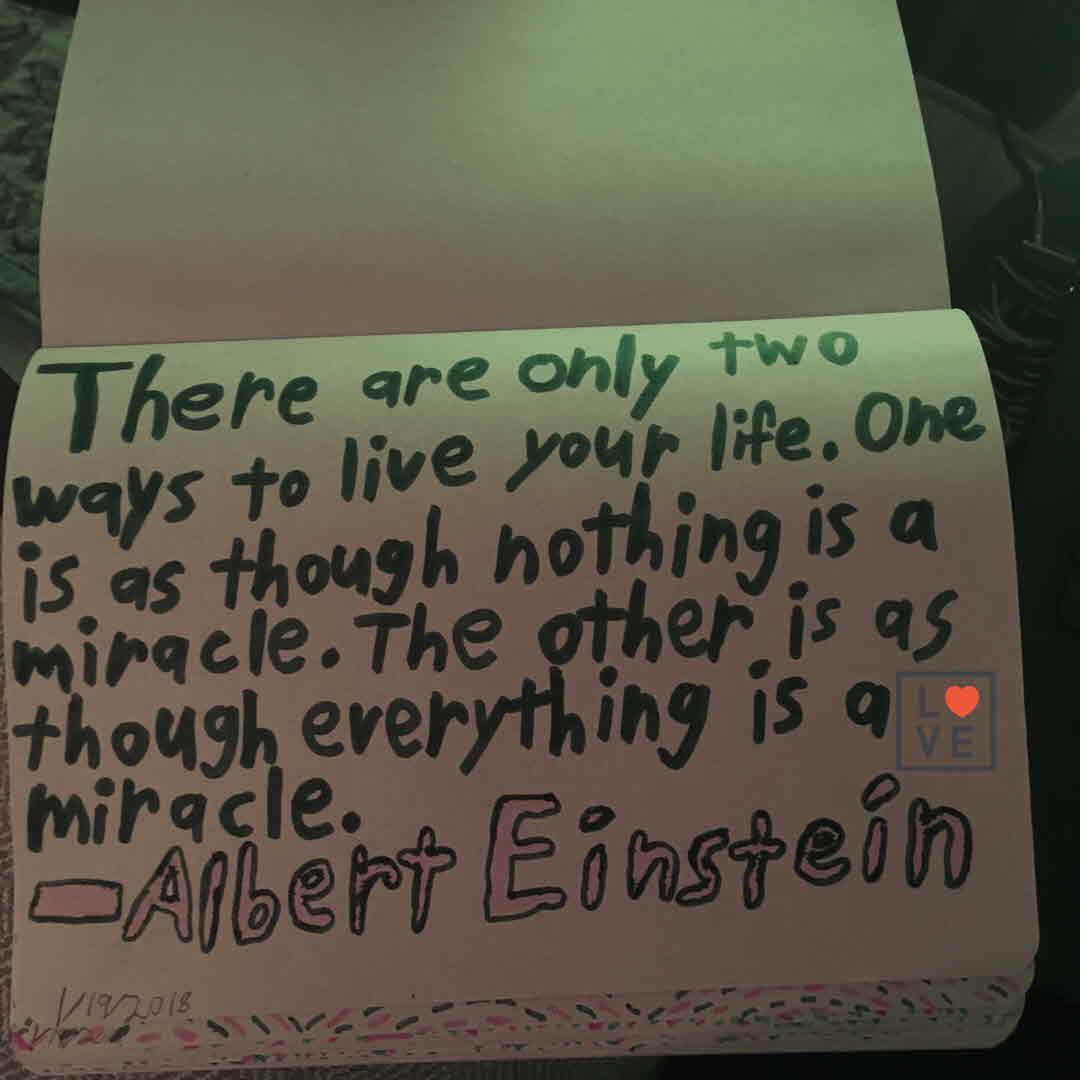 There are only two
ways to live your life. One
is as though nothing is a
miracle. The other is as
though everything is a
L❤
VE
miracle.
—Albert Einstein
1/19/2018